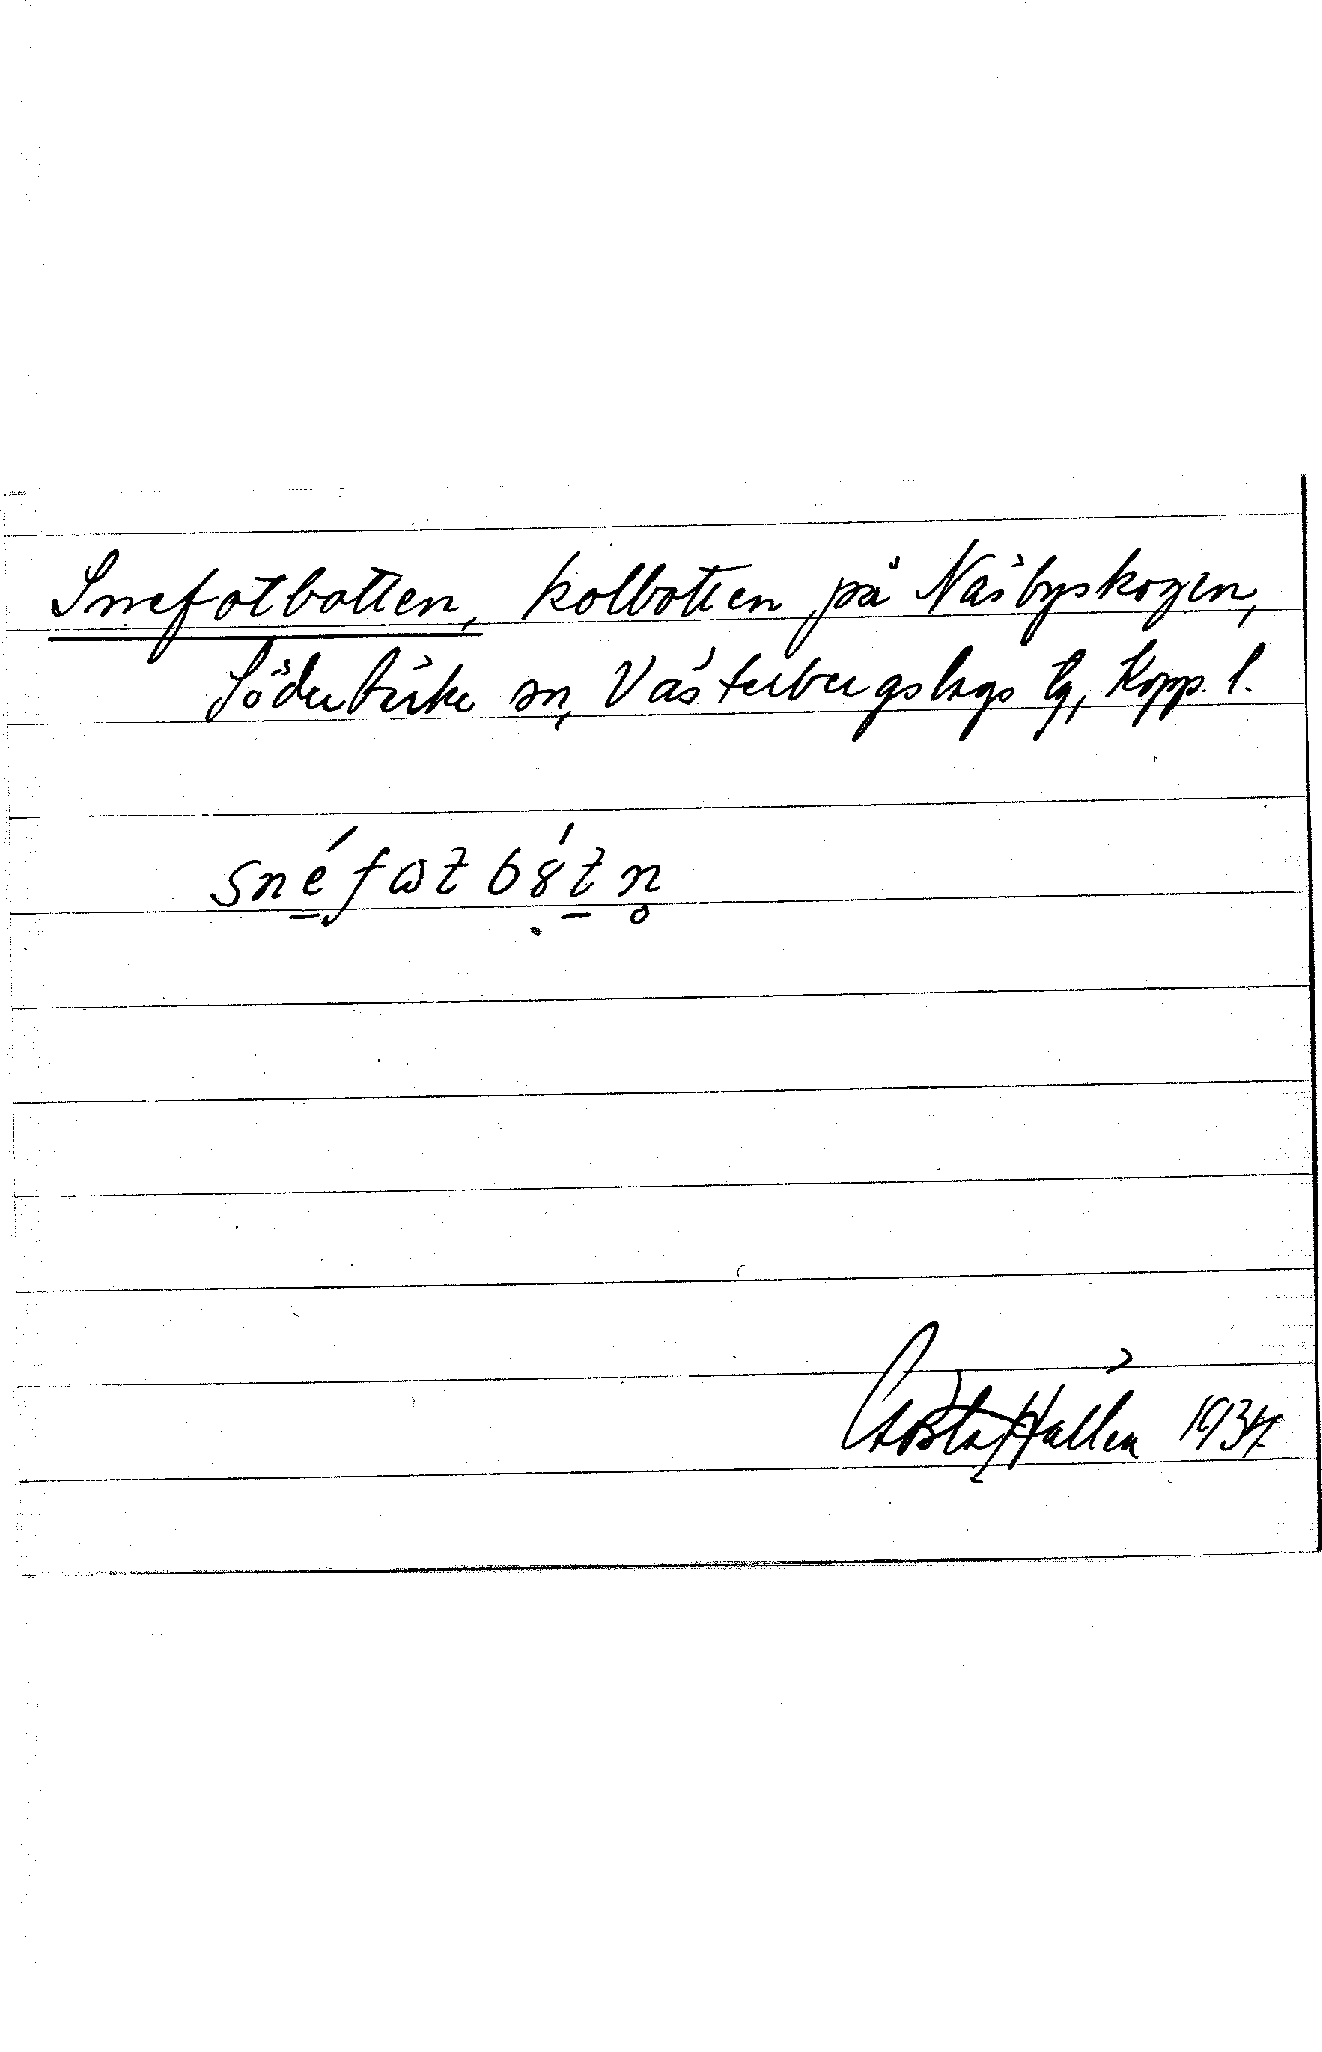 Snefotbotten, kolbotten på Näsbyskogen,
Söderbärke sn, Västerbergslags tg, Kopp. l.
snéfωt b8́tn̥
Gösta Hallén 1934